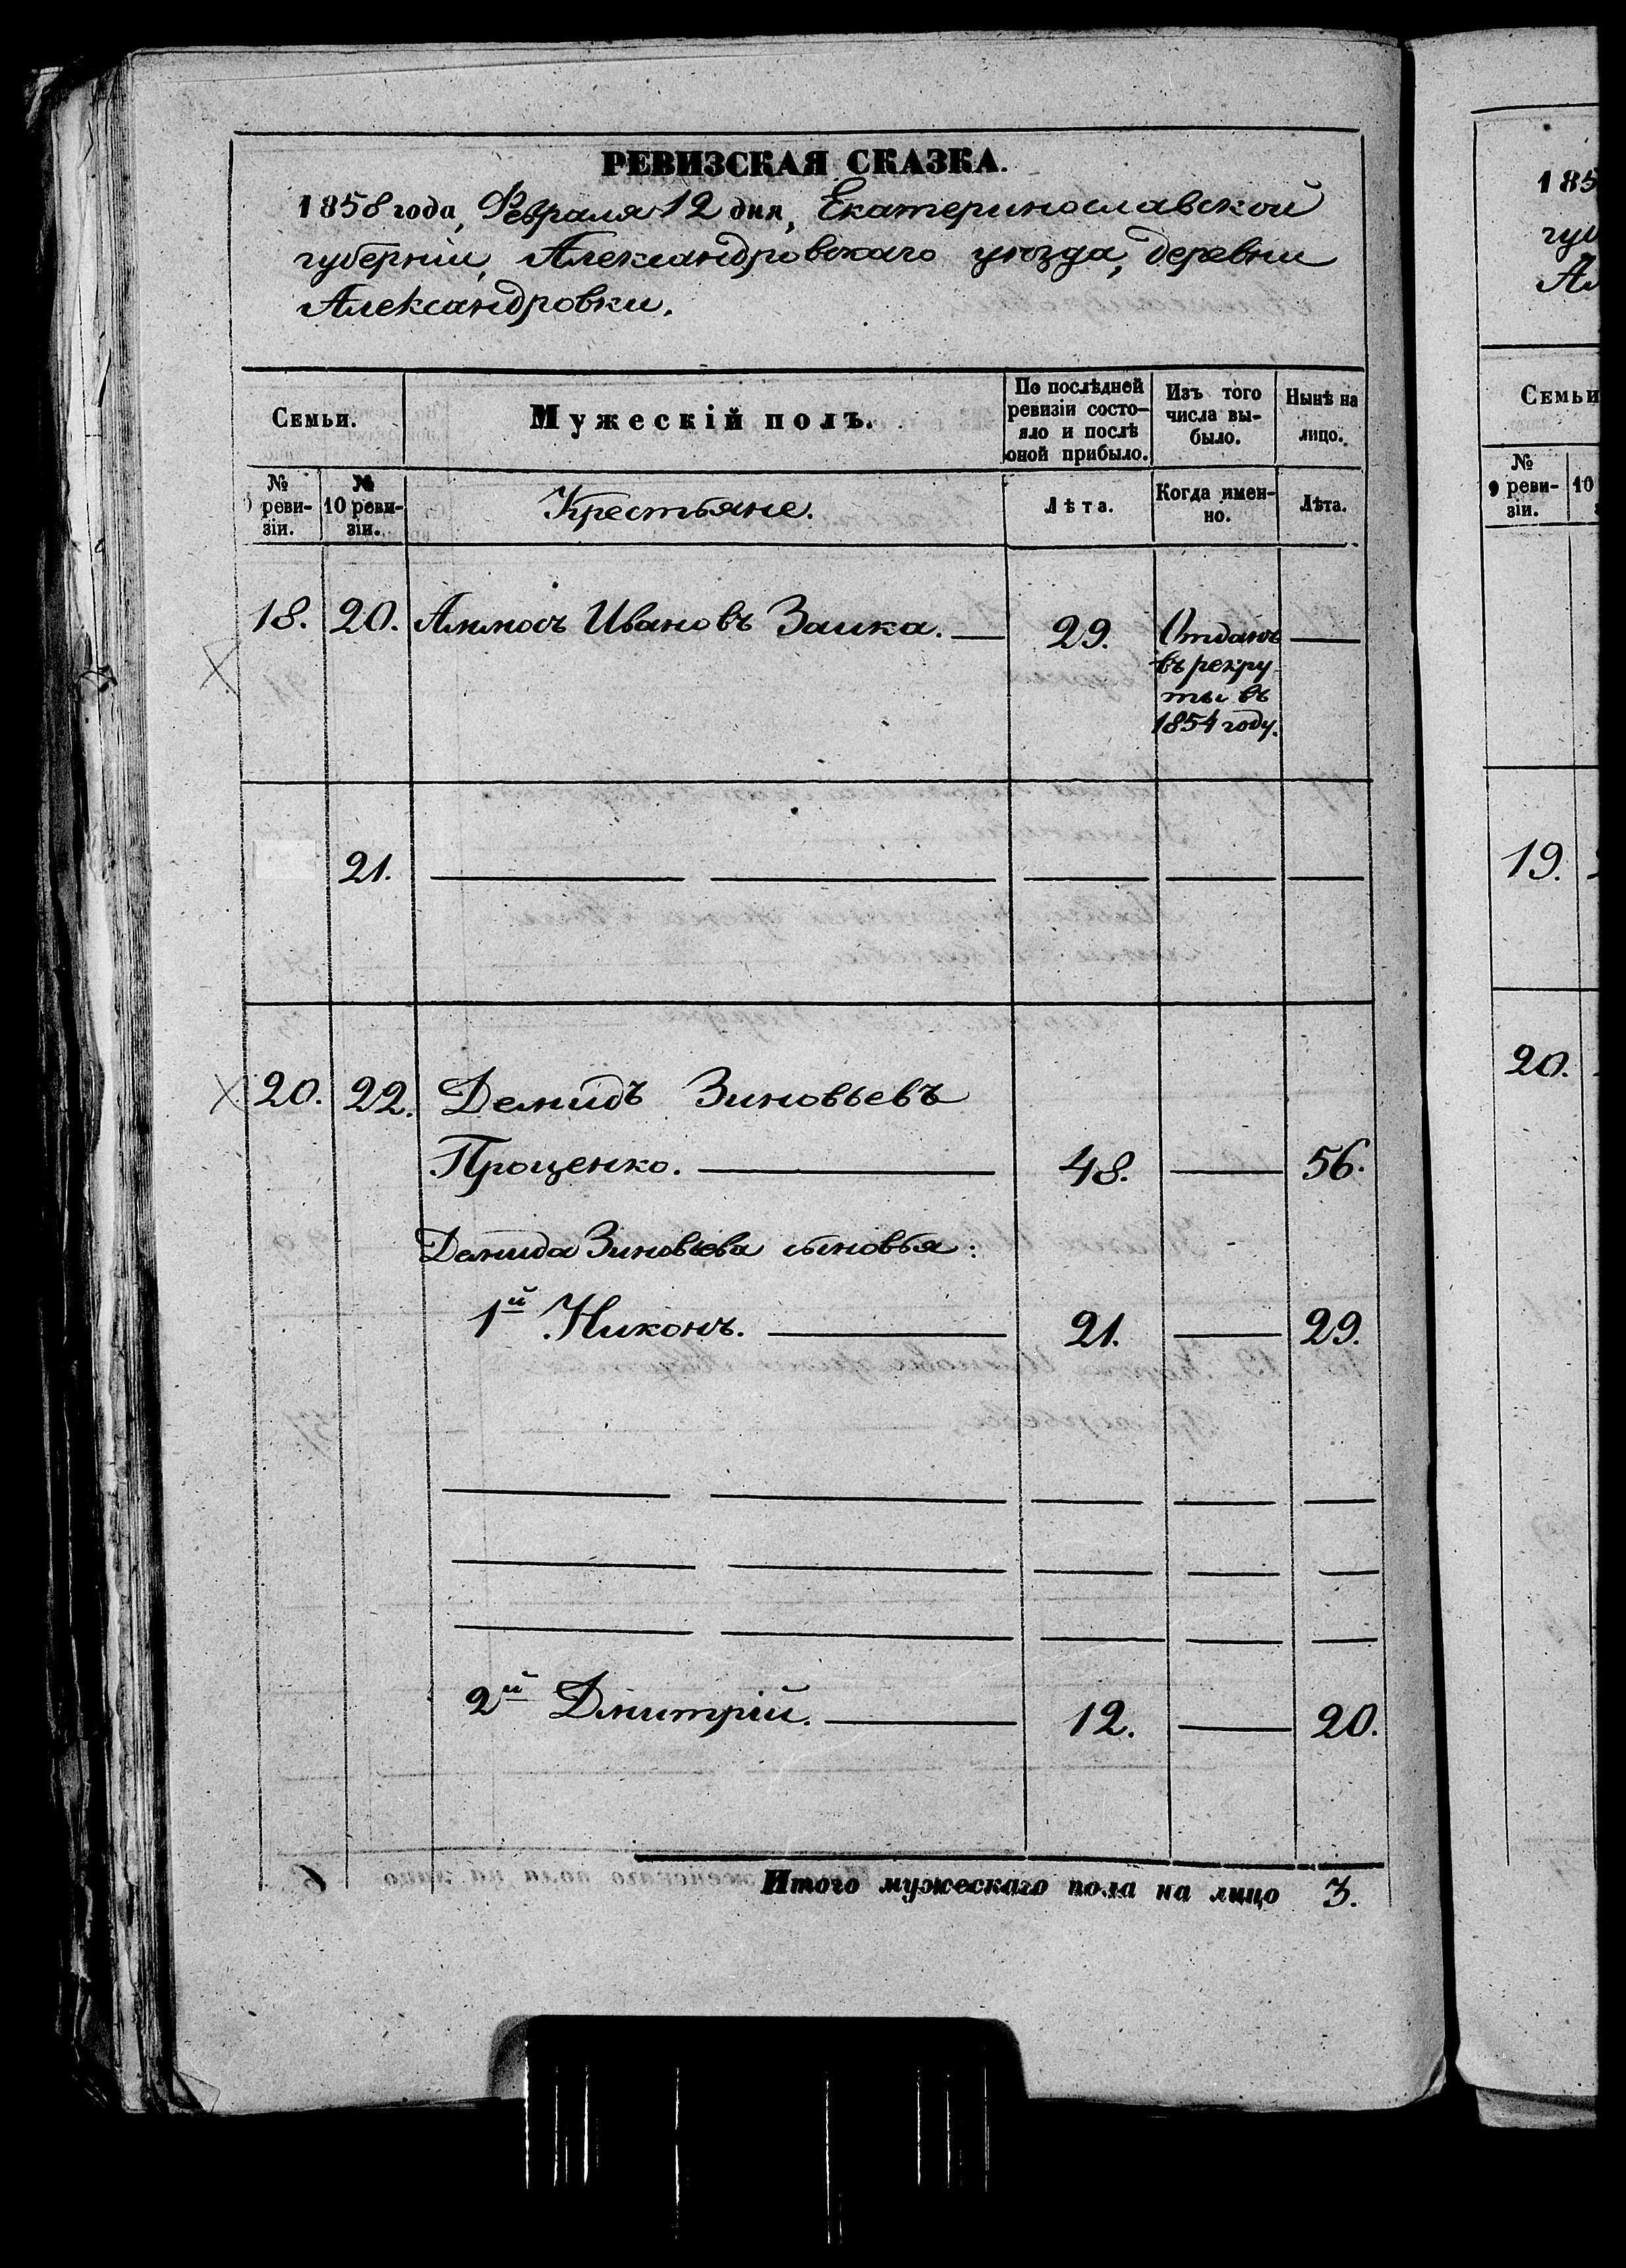 РЕВИЗСКАЯ СКАЗКА.
1858 года, Февраля 12 дня, Екатеринославской
губерніи, Александровскаго уѣзда, деревни
Александровки.
Семьи.
Мужескій полъ.
По послѣдней
ревизіи состо-
яло и послѣ
оной прибыло.
Изъ того
числа вы-
было.
Нынѣ на
лицо.
№
реви-
зіи.
№
10 реви-
зіи.
Крестьяне.
Лѣта.
Когда имен-
но.
Лѣта.
18. 20. Аммосъ Ивановъ Заика. 29. Отданъ
въ рекру-
ты въ
1854 году.
21.
20. 22. Демидъ Зиновьевъ
Проценко. 48. 56.
Демида Зиновьева сыновья:
1й Никонъ. 21. 29.
2й Дмитрій. 12. 20.
Итого мужескаго пола на лицо 3.
185
Семьи
№
9 реви-
зіи.
10
19.
20.